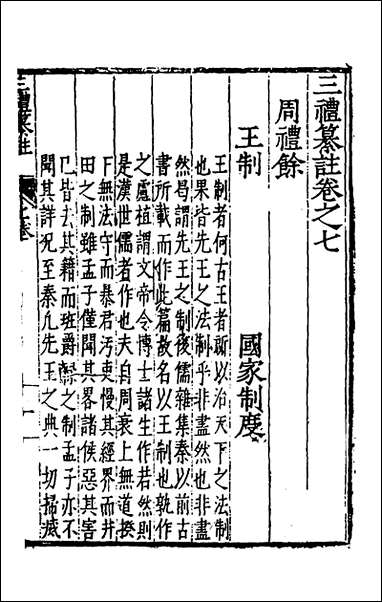 三禮纂註卷之七
周禮餘
王制　國家制度
王制者何古王者所以治天下之法制
也果皆先王之法制乎非盡然也非盡
然曷謂先王之制後儒雜集秦以前古
書所載而作此篇故名以王制也孰作
之盧植謂文帝令博士諸生作若然則
是漢世儒者作也夫自周衰上無道揆
下無法守而暴君汚吏慢其經界而井
田之制雖孟子僅聞其畧諸侯惡其害
已皆去其籍而班爵祿之制孟子亦不
聞其詳况至秦凢先王之典一切掃滅
三禮纂註
七卷
一